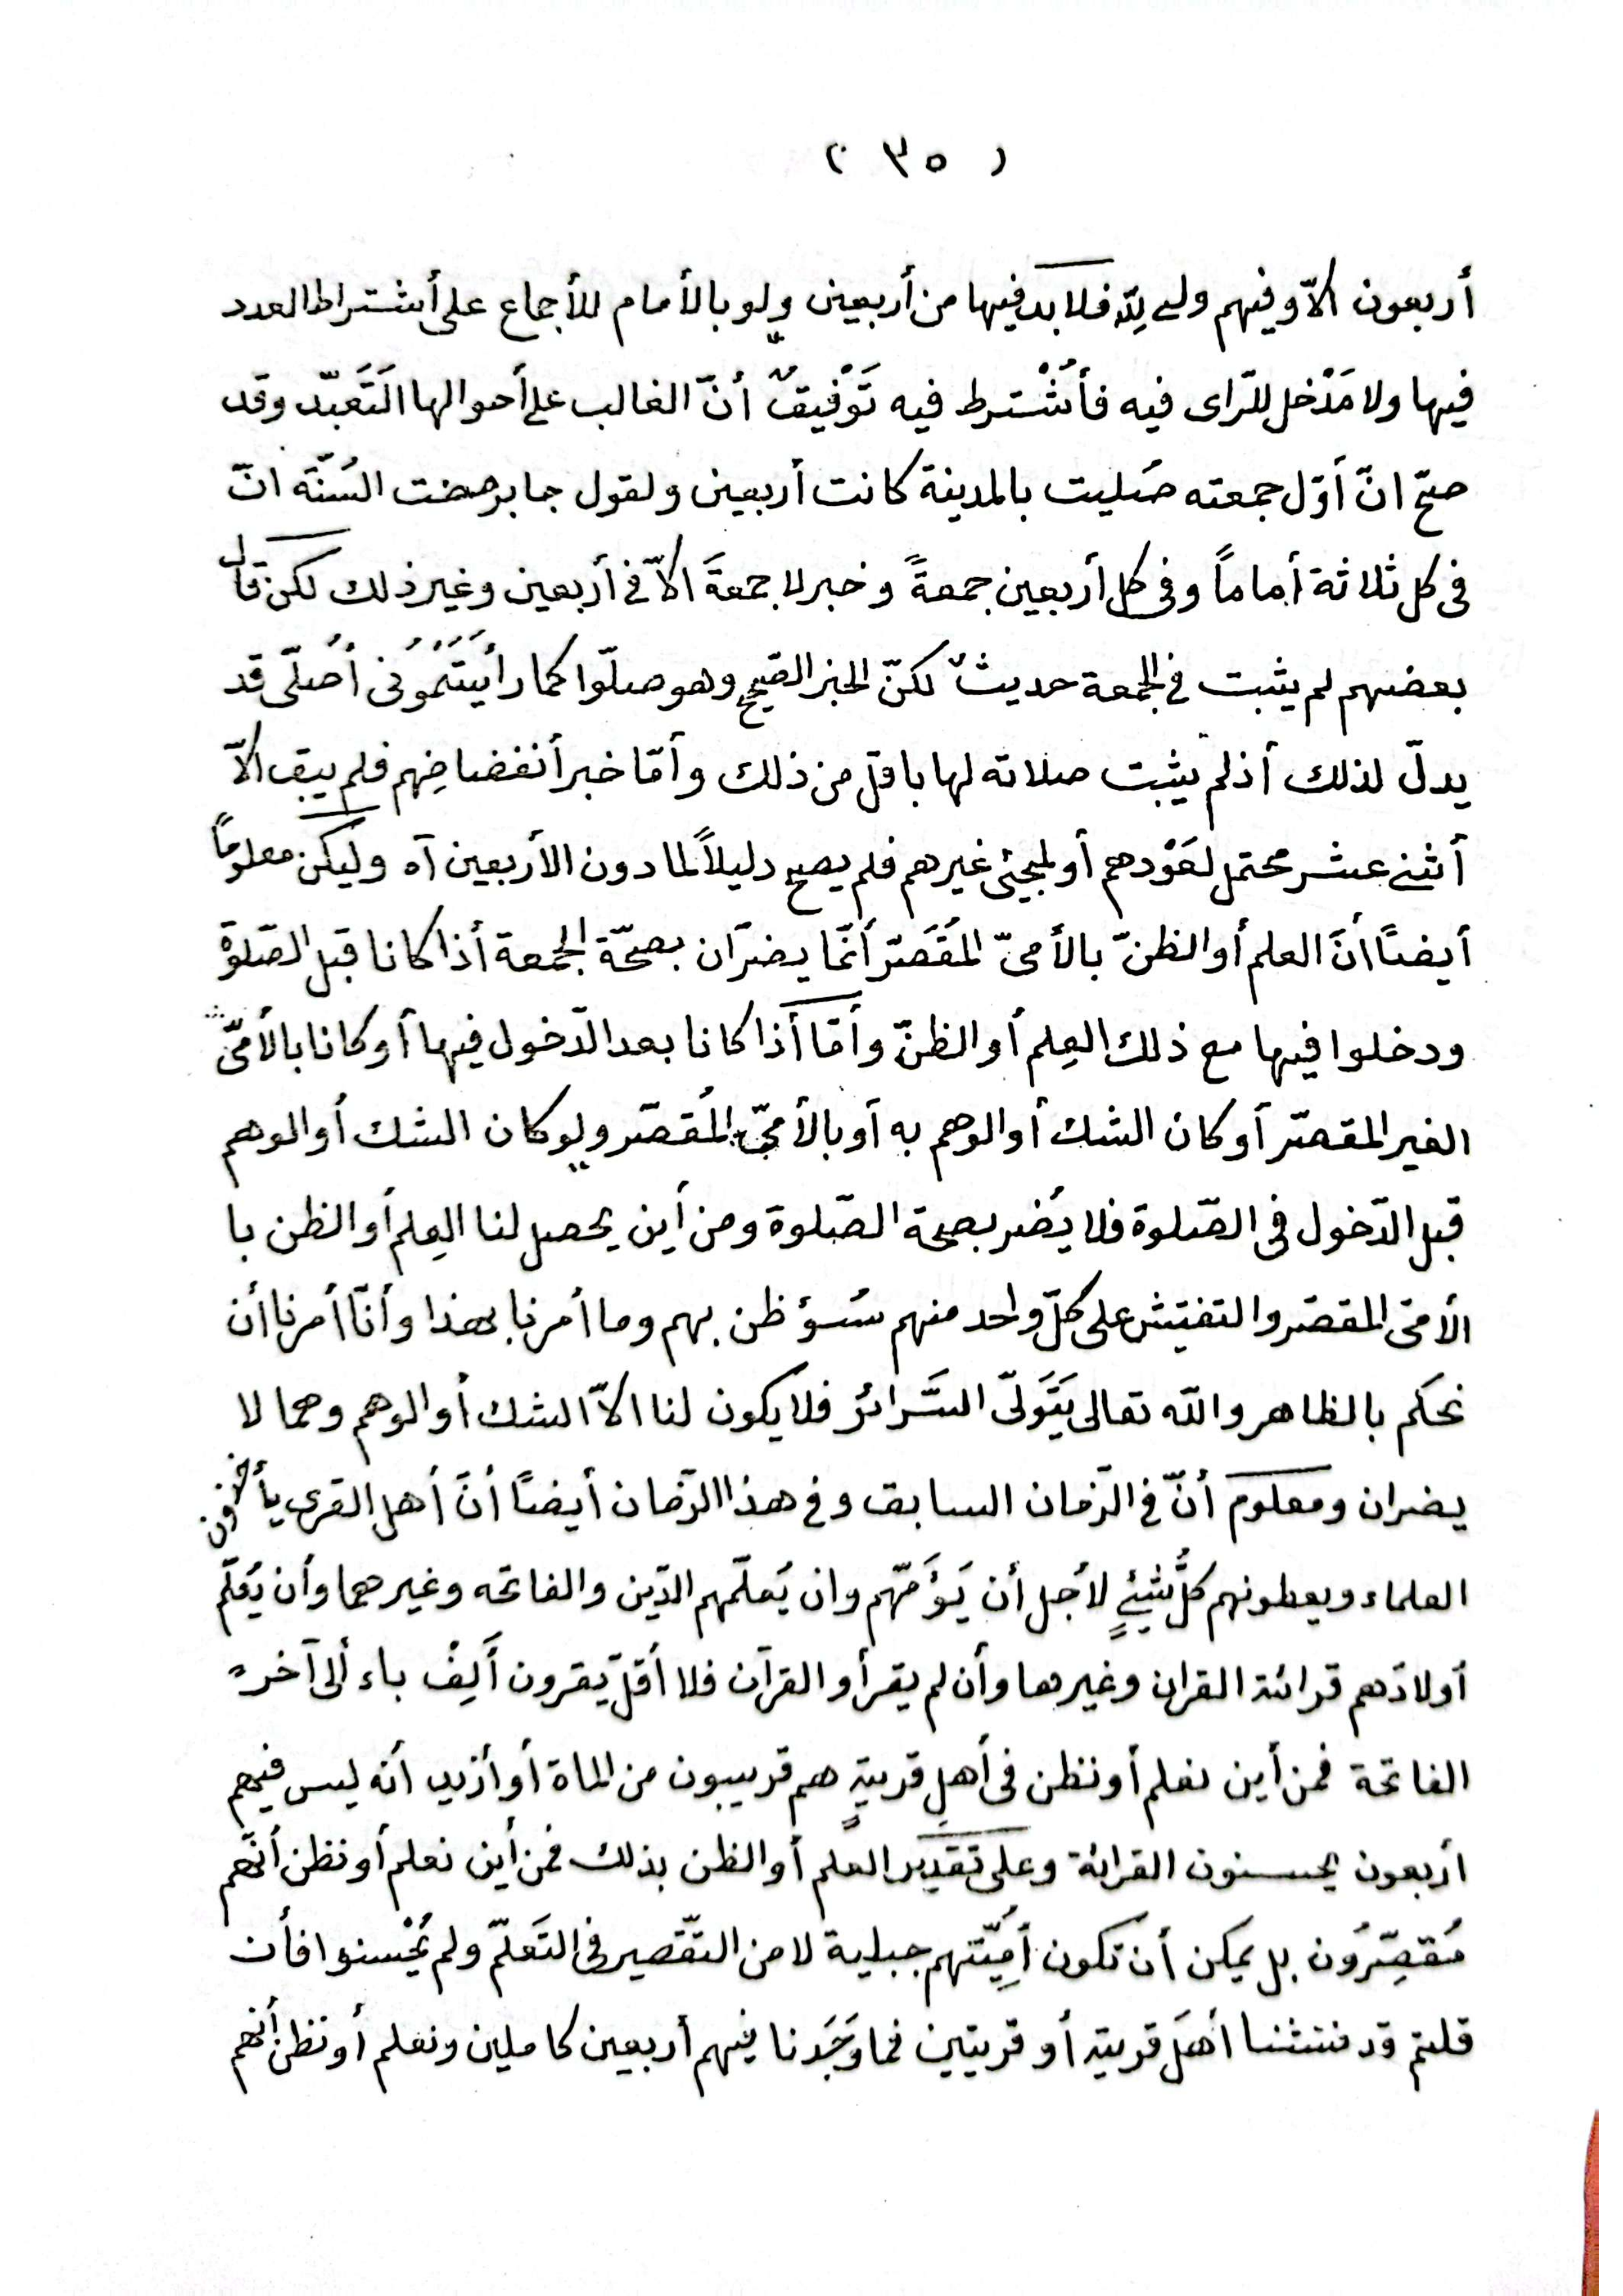 ( ٣٥ )
أربعون الاّ وفيهم ولى لِلّه فلا بد فيها من أربعين ولو بالأمام للأجماع على أشتراط العدد
فيها ولا مَدْخل للرّاى فيه فأشْترط فيه تَوْفيقٌ أنّ الغالب على أحوالها التَعَبّد وقد
صحّ انّ أوّل جمعته صُليت بالمدينة كانت أربعين ولقول جابر مضت السُنّة انّ
فى كل ثلاثة أماماً وفى كل أربعين جمعةً وخبر لا جمعةَ الاّ فى أربعين وغير ذلك لكن قال
بعضهم لم يثبت فى الجمعة حديثٌ لكنّ الخبر الصّحيح وهو صلّوا كما رأَيْتَمُوُنى أُصلّى قد
يدلّ لذلك أذ لم يثبت صلاته لها باقل من ذلك وأمّا خبر أنفضاضِهم فلم يبق الاّ
أثنى عشر محتمل لعَوْدهم أو لمجيئ غيرهم فلم يصح دليلاً لما دون الأربعين آه وليكن معلوماً
أيضًا أنّ العلم أو الظنّ بالأمىّ المُقَصّر أنّما يضرّان بصحّة الجمعة أذا كانا قبل الصّلوة
ودخلوا فيها مع ذلك العِلم أو الظنّ وأمّا أذا كانا بعد الدّخول فيها أو كانا بالأمىّ
الغير المقصّر أو كان الشك أو الوهم به أو بالأمىّ المُقصّر ولو كان الشك أو الوهم
قبل الدّخول فى الصّلوة فلا يُضر بصحة الصّلوة ومن أين يحصل لنا العِلم أو الظن با
الأمّى المقصّر والتفتيش على كلّ واحد منهم سُوؤ ظن بهم وما أمرنا بهذا وأنّا أمرنا أن
نحكم بالظاهر واللّه تعالى يَتَولّى السَّرائر فلا يكون لنا الاّ الشك أو الوهم وهما لا
يضران ومعلوم أنّ فى الزّمان السابق وفى هذا الزّمان أيضًا أنّ أهل القرى يأخذون
العلماء ويعطونهم كلُّ شيئٍ لأجل أن يَؤَمّهم وان يُعلّمهم الدّين والفاتحه وغيرهما وأن يُعَلّم
أولادَهم قرائة القران وغيرها وأن لم يقرأو القرآن فلا أقلّ يَقرون ألِفْ باء ألى آخره
الفاتحة فمن أين نعلم أو نظن فى أهلِ قريةٍ هم قريبون من الماة أو أزيد أنّه ليس فيهم
اربعون يحسنون القرائة وعلى تقدير العلم أو الظن بذلك فمن أين نعلم أو نظن أنّهم
مُقصِّرُون بل يمكن أن تكون أمِيّتهم جبلية لا من التّقصير فى التَعلّم ولم يُحْسنوا فأن
قلتم قد فتشنا أهلَ قرية أو قريتين فما وَجَدنا فيهم أربعين كاملين ونعلم أو نظن أنهم